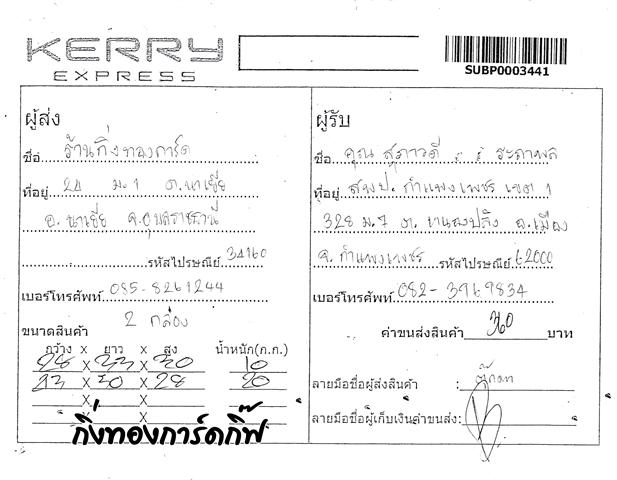 KERRY
EXPRESS
SUBP0003441
ผู้ส่ง
ชื่อ ร้านกิ่งทองการ์ด
ที่อยู่ 24 ม.1 ต.นาเยีย
อ.นาเยีย จ.อุบลราชธานี
รหัสไปรษณีย์ 34160
เบอร์โทรศัพท์ 085-8261244
ขนาดสินค้า 2 กล่อง
กว้าง x ยาว x สูง น้ำหนัก(ก.ก.)
X X 10
23 X 30 X 28 20
X X
X
กิ่งทองการ์ดกิ๊ฟ
ผู้รับ
ชื่อ คุณ สุภาวดี
ที่อยู่ สพป. กำแพงเพชร เขต 1
328 ม.7 ต. หนองปลิง อ.เมือง
จ. กำแพงเพชร รหัสไปรษณีย์ 62000
เบอร์โทรศัพท์ 082-3969834
ค่าขนส่งสินค้า 360 บาท
ลายมือชื่อผู้ส่งสินค้า :
ลายมือชื่อผู้เก็บเงินค่าขนส่ง: